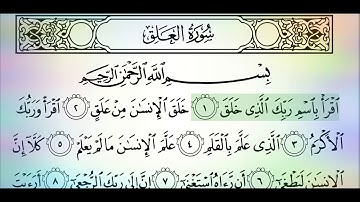 سُورَةُ العَلَقِ
بِسْمِ ٱللَّهِ ٱلرَّحْمَٰنِ ٱلرَّحِيمِ
ٱقْرَأْ بِٱسْمِ رَبِّكَ ٱلَّذِى خَلَقَ ١ خَلَقَ ٱلْإِنسَٰنَ مِنْ عَلَقٍ ٢ ٱقْرَأْ وَرَبُّكَ
ٱلْأَكْرَمُ ٣ ٱلَّذِى عَلَّمَ بِٱلْقَلَمِ ٤ عَلَّمَ ٱلْإِنسَٰنَ مَا لَمْ يَعْلَمْ ٥ كَلَّآ إِنَّ
ٱلْإِنسَٰنَ لَيَطْغَىٰٓ ٦ أَن رَّءَاهُ ٱسْتَغْنَىٰٓ ٧ إِنَّ إِلَىٰ رَبِّكَ ٱلرُّجْعَىٰٓ ٨ أَرَءَيْتَ